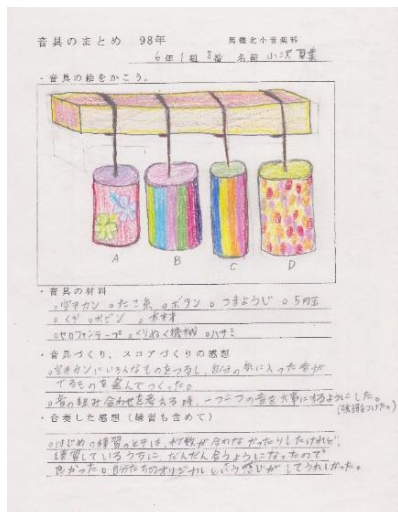 音具のまとめ 98年 馬橋北小音楽科
6年1組 2番 名前 小沢
・音具の絵をかこう。
A B C D
・音具の材料
。空きカン 。たこ糸 。ボタン 。つまようじ 。5円玉
。くぎ 。ボビン 。木材
。セロファンテープ 。くりぬく機械 。ハサミ
・音具づくり、スコアづくりの感想
。空きカンにいろんなものをつるし、自分の気に入った音が
でるものを選んでつくった。
。音の組み合わせを考える時、一つ一つの音を大事にするようにした。
(強弱をつけた。)
・合奏した感想(練習も含めて)
。はじめの練習のときは、拍数が合わなかったりしたけれど、
練習しているうちに、だんだん合うようになったので
良かった。自分たちのオリジナルという感じがしてうれしかった。